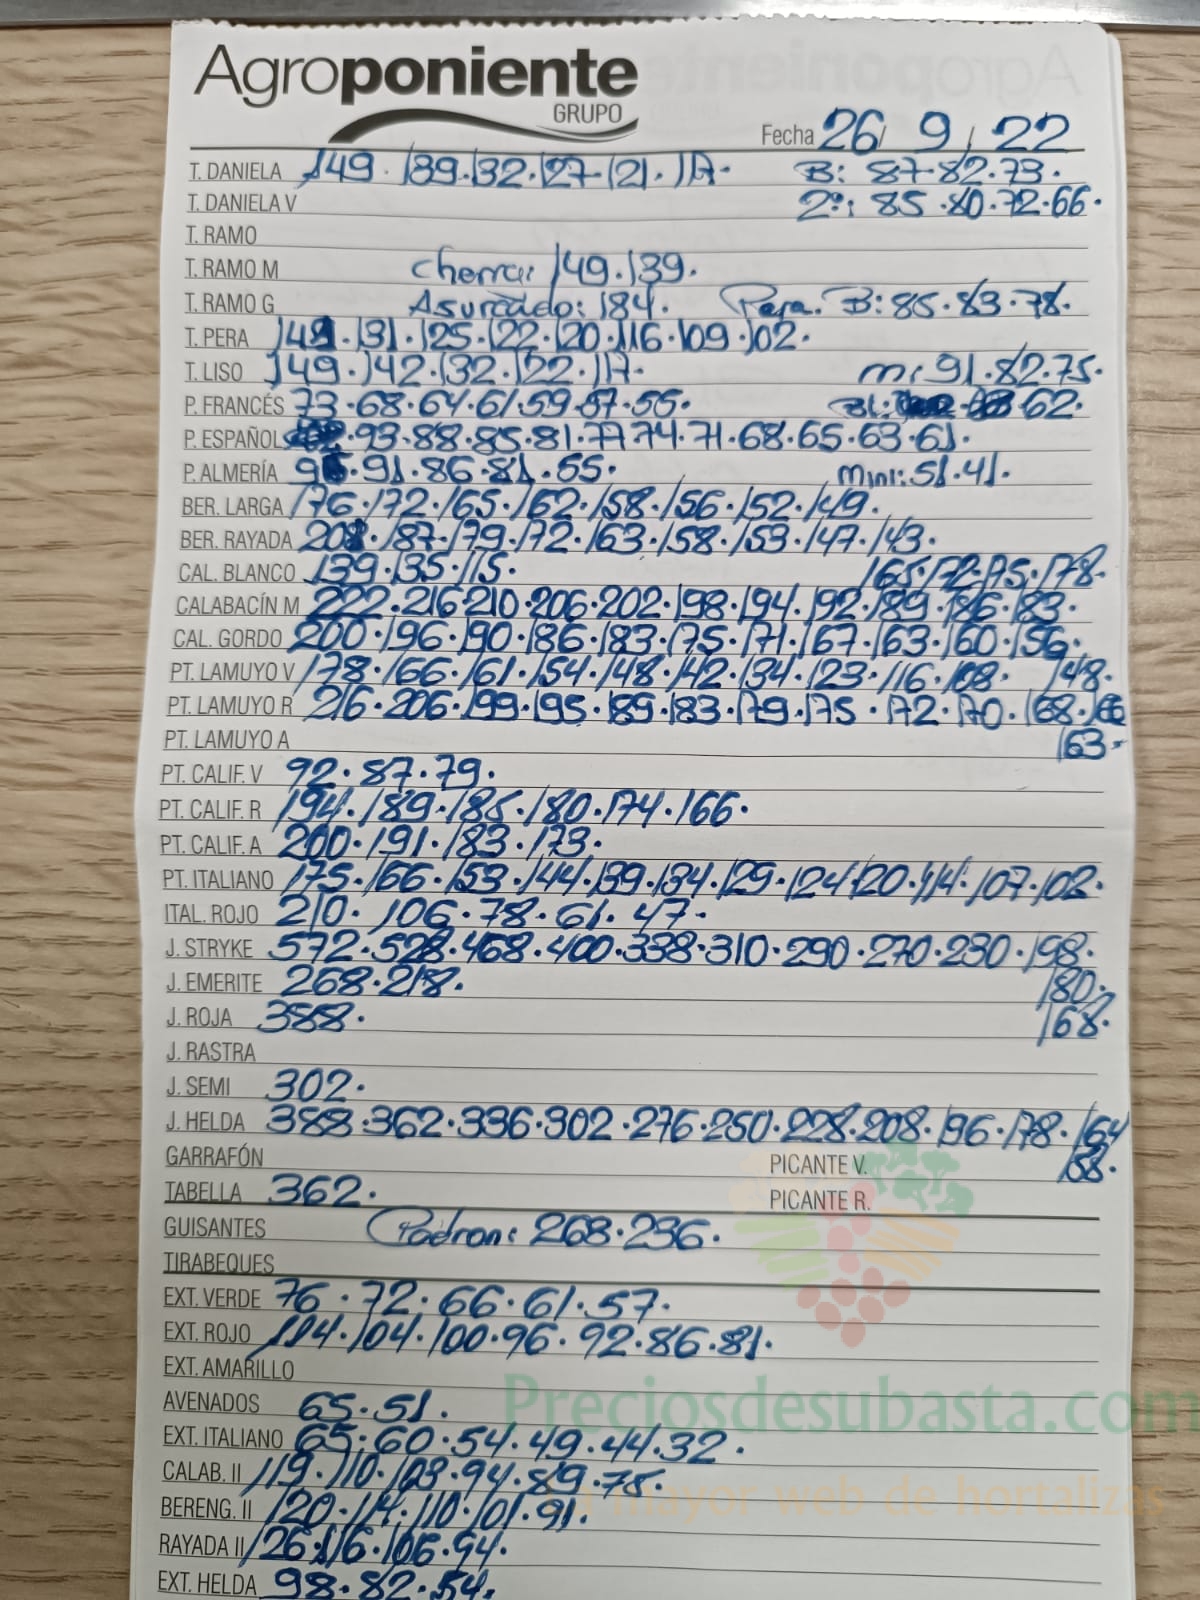 Agroponiente
GRUPO
Fecha 26/ 9 / 22
T. DANIELA 149 · 139 · 132 · 127 · 121 · 117 · B: 87 · 82 · 73 ·
T. DANIELA V 2ª: 85 · 80 · 72 · 66 ·
T. RAMO
T. RAMO M Cherra: 149 · 139 ·
T. RAMO G Asurcado: 184 · Pera. B: 85 · 83 · 78 ·
T. PERA 141 · 131 · 125 · 122 · 120 · 116 · 109 · 102 ·
T. LISO 149 · 142 · 132 · 122 · 117 · m: 91 · 82 · 75 ·
P. FRANCÉS 73 · 68 · 64 · 61 · 59 · 57 · 55 · Bl: 62 ·
P. ESPAÑOL · 93 · 88 · 85 · 81 · 77 · 74 · 71 · 68 · 65 · 63 · 61 ·
P. ALMERÍA · 91 · 86 · 81 · 55 · Mini: 51 · 41 ·
BER. LARGA 176 · 172 · 165 · 162 · 158 · 156 · 152 · 149 ·
BER. RAYADA 201 · 187 · 179 · 172 · 163 · 158 · 153 · 147 · 143 ·
CAL. BLANCO 139 · 135 · 115 · 165 · 172 · 175 · 178 ·
CALABACÍN M 222 · 216 · 210 · 206 · 202 · 198 · 194 · 192 · 189 · 186 · 183 ·
CAL. GORDO 200 · 196 · 190 · 186 · 183 · 175 · 171 · 167 · 163 · 160 · 156 ·
PT. LAMUYO V 178 · 166 · 161 · 154 · 148 · 142 · 134 · 123 · 116 · 108 · 148 ·
PT. LAMUYO R 216 · 206 · 199 · 195 · 189 · 183 · 179 · 175 · 172 · 170 · 168 · 166
PT. LAMUYO A 163 ·
PT. CALIF. V 92 · 87 · 79 ·
PT. CALIF. R 194 · 189 · 185 · 180 · 174 · 166 ·
PT. CALIF. A 200 · 191 · 183 · 173 ·
PT. ITALIANO 175 · 166 · 153 · 144 · 139 · 134 · 129 · 124 · 120 · 114 · 107 · 102 ·
ITAL. ROJO 210 · 106 · 78 · 61 · 47 ·
J. STRYKE 572 · 528 · 468 · 400 · 338 · 310 · 290 · 270 · 230 · 198 ·
J. EMERITE 268 · 218 · 180 ·
J. ROJA 388 · 168 ·
J. RASTRA
J. SEMI 302 ·
J. HELDA 388 · 362 · 336 · 302 · 276 · 250 · 228 · 208 · 196 · 178 · 164
GARRAFÓN PICANTE V. 158 ·
TABELLA 362 · PICANTE R.
GUISANTES Padron: 268 · 236 ·
TIRABEQUES
EXT. VERDE 76 · 72 · 66 · 61 · 57 ·
EXT. ROJO 114 · 104 · 100 · 96 · 92 · 86 · 81 ·
EXT. AMARILLO
AVENADOS 65 · 51 ·
Preciosdesubasta.com
EXT. ITALIANO 65 · 60 · 54 · 49 · 44 · 32 ·
CALAB. II 119 · 110 · 103 · 94 · 89 · 75 ·
mayor web de hortalizas
BERENG. II 120 · 114 · 110 · 101 · 91 ·
RAYADA II 126 · 116 · 106 · 94 ·
EXT. HELDA 98 · 82 · 54 ·